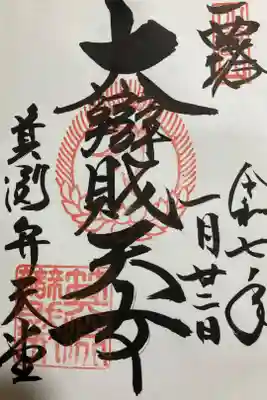 奉拝
令和七年
一月廿二日
大辯財天女
箕渕弁天堂